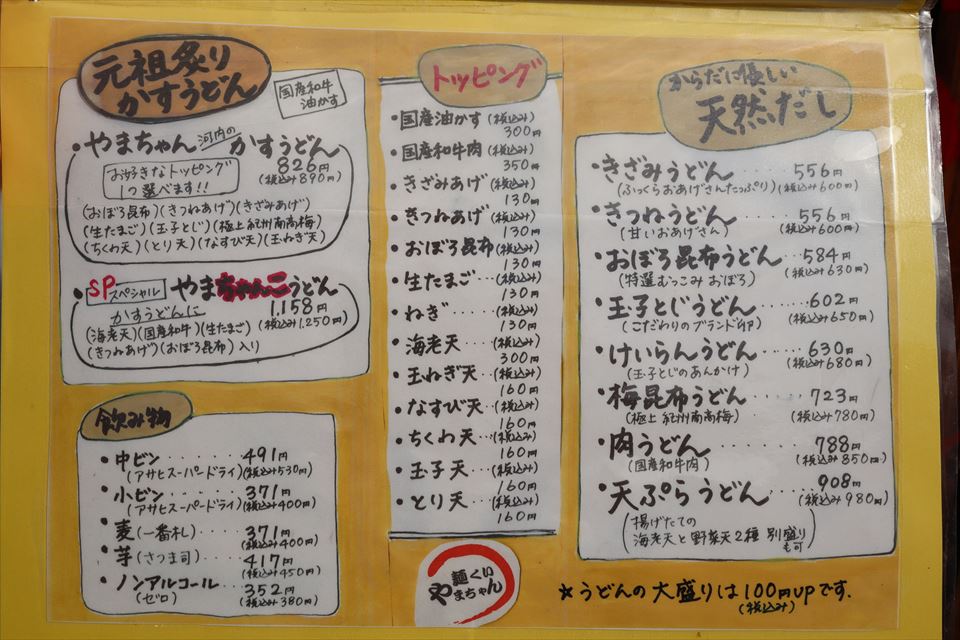 元祖炙り
かすうどん
国産和牛
油かす
・やまちゃん 河内の かすうどん
826円
(税込み890円)
お好きなトッピング
1つ選べます!!
(おぼろ昆布)(きつねあげ)(きざみあげ)
(生たまご)(玉子とじ)(極上紀州南高梅)
(ちくわ天)(とり天)(なすび天)(玉ねぎ天)
・SPスペシャル やまちゃんこうどん
かすうどんに 1,158円
(海老天)(国産和牛)(生たまご) (税込み1,250円)
(きつねあげ)(おぼろ昆布)入り
飲み物
・中ビン・・・・・・491円
(アサヒスーパードライ)(税込み530円)
・小ビン・・・・・・371円
(アサヒスーパードライ)(税込み400円)
・麦(一番札)・・・371円
(税込み400円)
・芋(さつま司)・・・417円
(税込み450円)
・ノンアルコール・・・352円
(ゼロ) (税込み380円)
トッピング
・国産油かす(税込み)
300円
・国産和牛肉(税込み)
350円
・きざみあげ(税込み)
130円
・きつねあげ(税込み)
130円
・おぼろ昆布(税込み)
130円
・生たまご・(税込み)
130円
・ねぎ・・・(税込み)
130円
・海老天・・(税込み)
300円
・玉ねぎ天・・(税込み)
160円
・なすび天・・(税込み)
160円
・ちくわ天・・(税込み)
160円
・玉子天・・・(税込み)
160円
・とり天・・・(税込み)
160円
麺くい
やまちゃん
からだに優しい
天然だし
・きざみうどん・・・・556円
(ふっくらおあげさんたっぷり)(税込み600円)
・きつねうどん・・・・556円
(甘いおあげさん) (税込み600円)
・おぼろ昆布うどん・・584円
(特選むっこみおぼろ) (税込み630円)
・玉子とじうどん・・・602円
(こだわりのブランド卵) (税込み650円)
・けいらんうどん・・・630円
(玉子とじのあんかけ) (税込み680円)
・梅昆布うどん・・・・723円
(極上紀州南高梅) (税込み780円)
・肉うどん・・・・・・788円
(国産和牛肉) (税込み850円)
・天ぷらうどん・・・・908円
(税込み980円)
(揚げたての
海老天と野菜天2種 別盛り
も可)
★うどんの大盛りは100円upです.
(税込み)